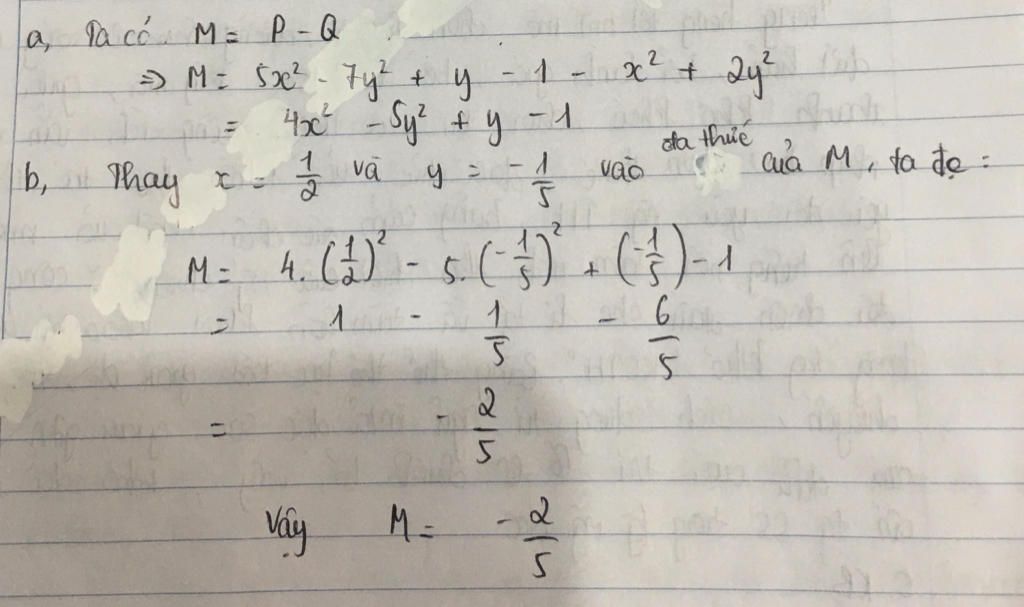 a, Ta có M = P - Q
=> M = 5x² - 7y² + y - 1 - x² + 2y²
= 4x² - 5y² + y - 1
b, Thay x = 1/2 và y = -1/5 vào đa thức của M, ta đc :
M = 4.(1/2)² - 5.(-1/5)² + (-1/5) - 1
= 1 - 1/5 - 6/5
= -2/5
Vậy M = -2/5